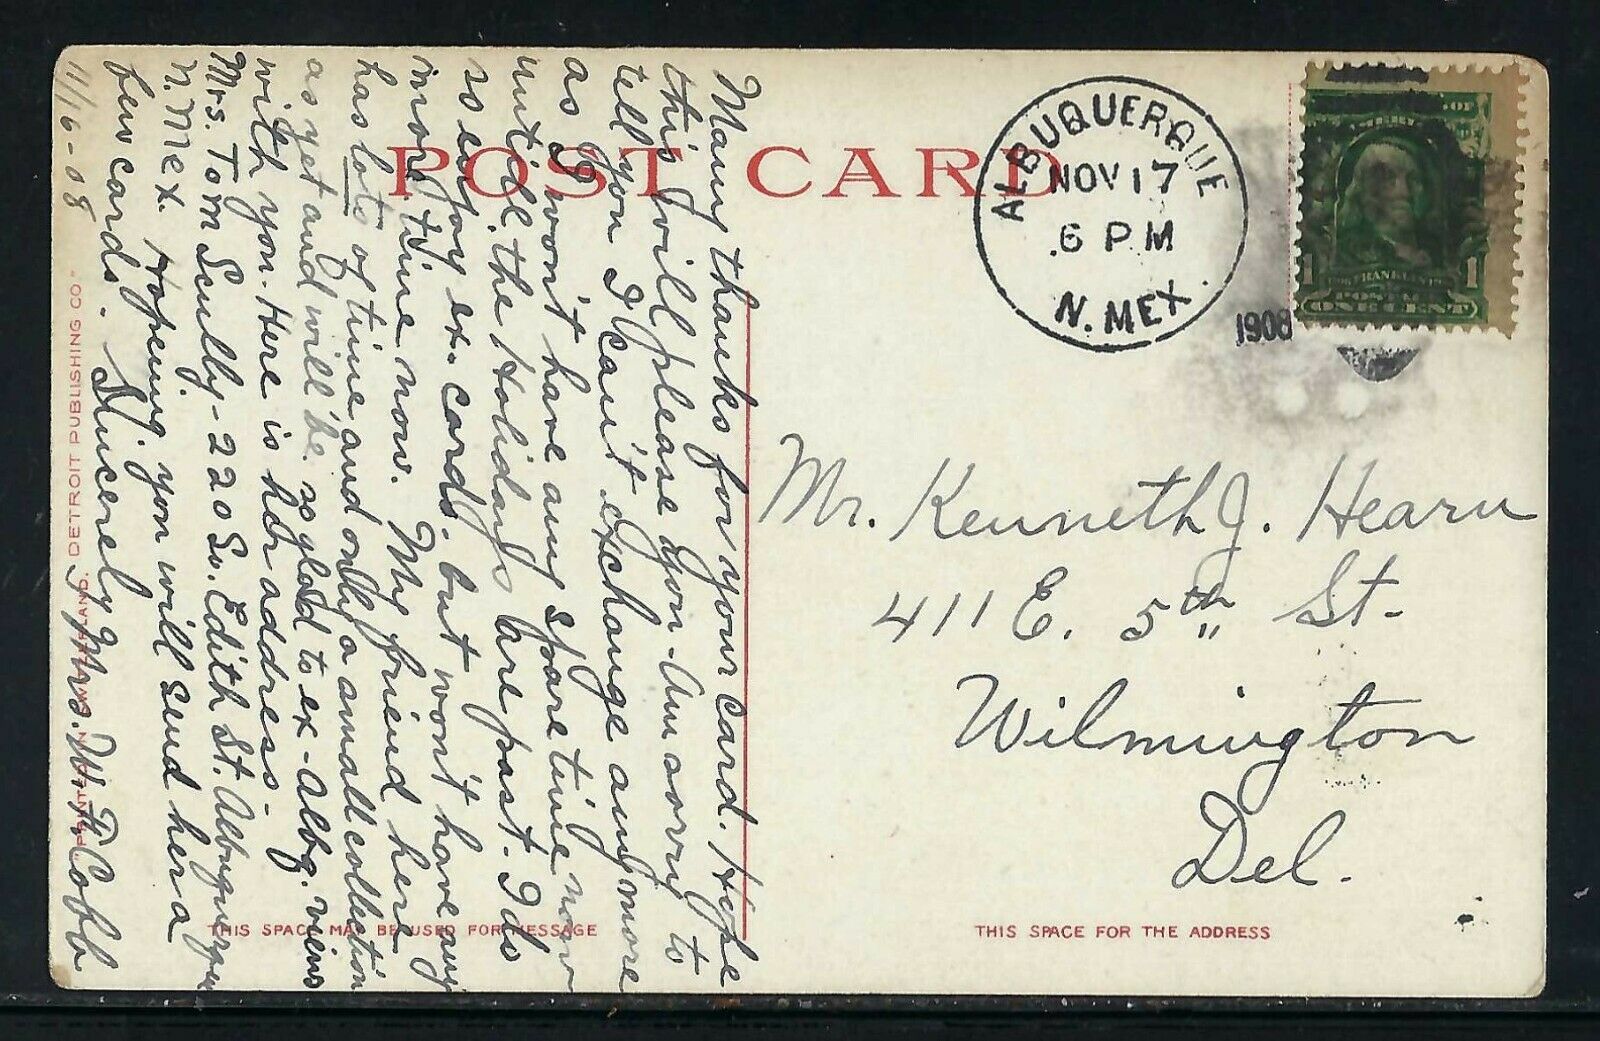 POST CARD
ALBUQUERQUE
NOV 17
6 PM
1908
N. MEX.
1 1
POSTAGE
ONE CENT
Many thanks for your card. Hope
this will please you - Am sorry to
tell you I can't exchange any more
as I won't have any spare time now
until the Holidays are past. I do
so enjoy ex. cards. but won't have any
more time now. My friend here
has lots of time and only a small collection
as yet and will be so glad to ex - Albq. views
with you. Here is her address -
Mrs. Tom Scully - 220 So. Edith St. Albuquerque
N. Mex. Hopeing you will send her a
few cards. Sincerely Mrs. W. H. Cobb
11/16-08
Mr. Kenneth J. Hearn
411 E. 5th St-
Wilmington
Del.
THIS SPACE MAY BE USED FOR MESSAGE
THIS SPACE FOR THE ADDRESS
"PRINTED IN SWITZERLAND. DETROIT PUBLISHING CO"